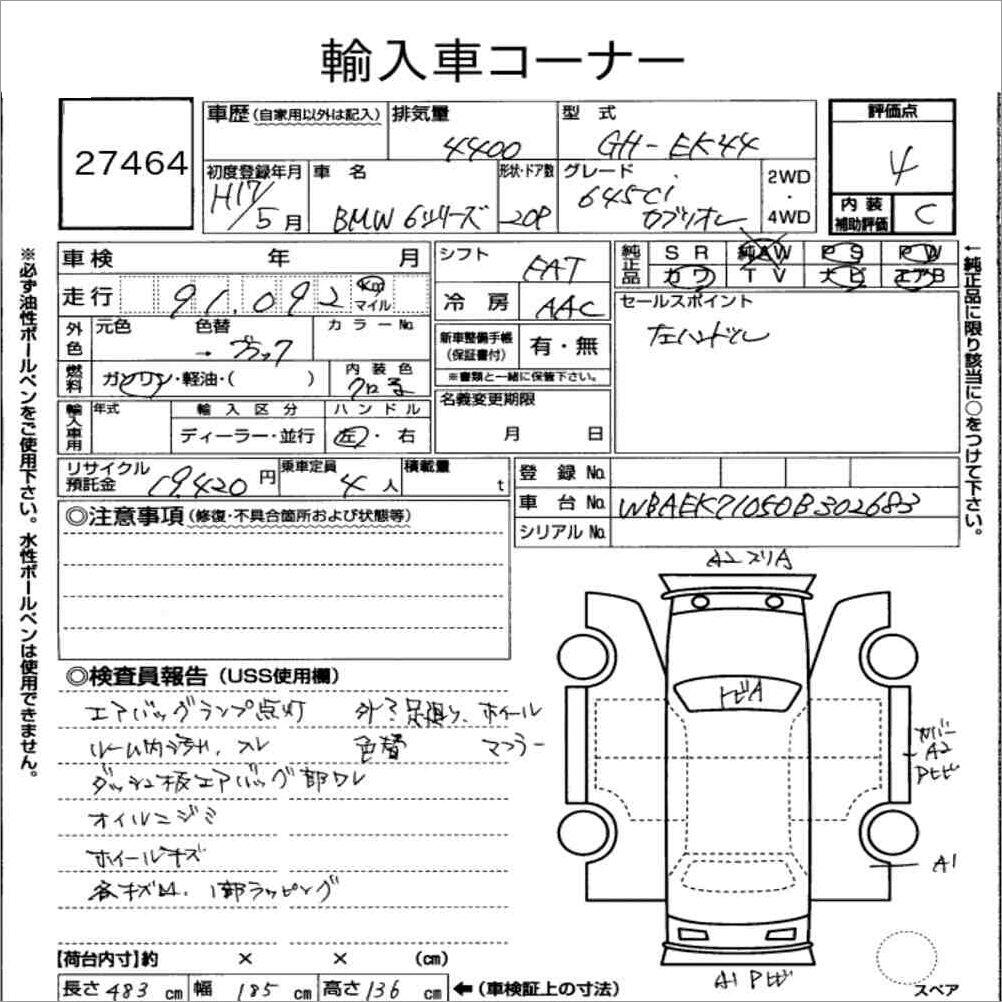 輸入車コーナー
27464
車歴(自家用以外は記入)
排気量
4400
型 式
GH-EK44
評価点
4
初度登録年月
H17/5月
車 名
BMW 6シリーズ
形状・ドア数
グレード
645Ci
カブリオレ
2WD
・
4WD
内装
補助評価
C
車検 年 月
走行 91,092 Km
マイル
シフト
FAT
冷房 AAC
純正品
SR 純AW PS PW
カワ TV ナビ エアB
外色
元色 色替
→ ブラック
カラーNo.
新車整備手帳
(保証書付)
有・無
※書類と一緒に保管下さい。
セールスポイント
左ハンドル
燃料
ガソリン・軽油・( )
内装色
クロ系
名義変更期限
月 日
輸入車用
年式
輸入区分
ディーラー・並行
ハンドル
左・右
リサイクル
預託金 19,420円
乗車定員
4人
積載量
t
登録No.
車台No. WBAEK71050B302683
シリアルNo.
※必ず油性ボールペンをご使用下さい。水性ボールペンは使用できません。
←純正品に限り該当に○をつけて下さい。
◎注意事項(修復・不具合箇所および状態等)
◎検査員報告(USS使用欄)
エアバッグランプ点灯
ルーム内汚れ、スレ
ダッシュ板エアバッグ部ワレ
オイルニジミ
ホイールキズ
各キズ凹、1部ラッピング
足廻り、ホイール
色替 マフラー
A2 スリA
トビA
カバー
A2
Pヒビ
A1
A1 Pヒビ
スペア
【荷台内寸】約 × × (cm)
長さ 483 cm 幅 185 cm 高さ 136 cm
←(車検証上の寸法)